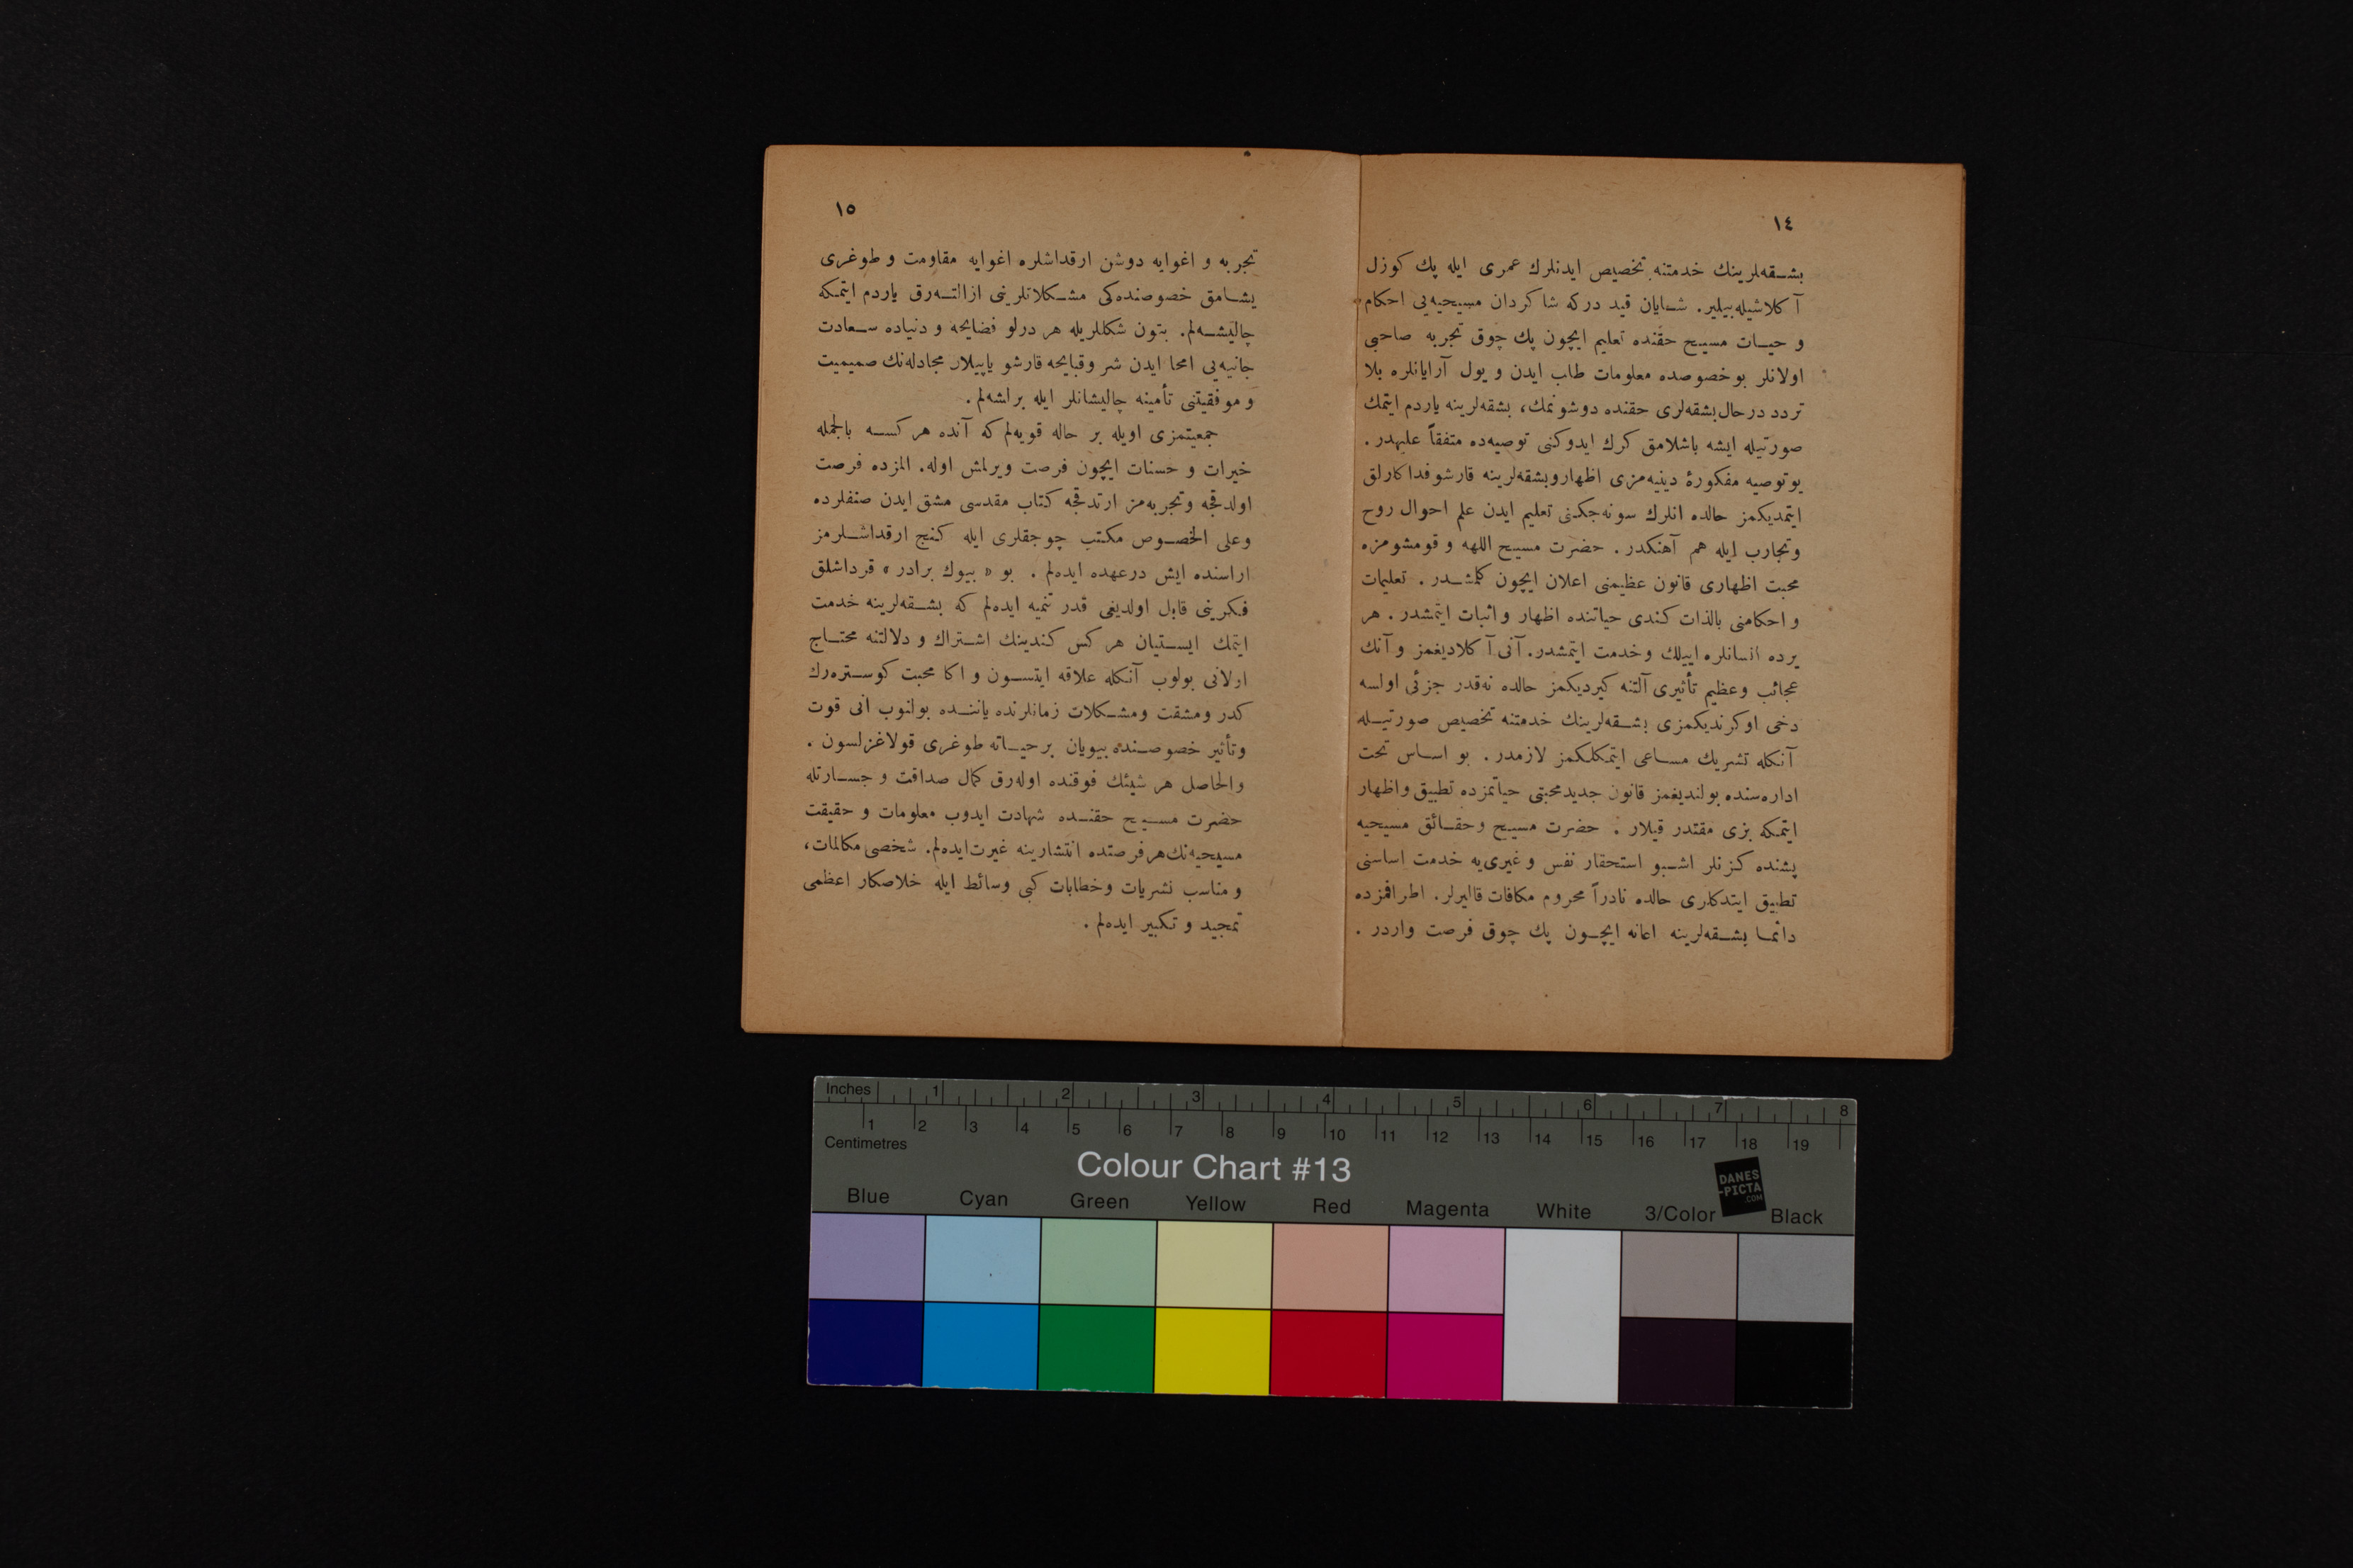 ١٤
بشقه‌لرينك خدمتنه تخصيص ايدنلرك عمرى ايله پك كوزل
آكلاشيله‌بيلير. شايان قيد دركه شاكردان مسيحيه‌يى احكام
و حيات مسيح حقنده تعليم ايچون پك چوق تجربه صاحبى
اولانلر بوخصوصده معلومات طلب ايدن و يول آرايانلره بلا
تردد درحال بشقه‌لرى حقنده دوشونمك، بشقه‌لرينه ياردم ايتمك
صورتيله ايشه باشلامق كرك ايدوكنى توصيه‌ده متفقاً عليهدر.
بوتوصيه مفكورهٔ دينيه‌مزى اظهاروبشقه‌لرينه قارشوفداكارلق
ايتمديكمز حالده انلرك سونه‌جكنى تعليم ايدن علم احوال روح
وتجارب ايله هم آهنكدر. حضرت مسيح اللهه و قومشومزه
محبت اظهارى قانون عظيمنى اعلان ايچون كلمشدر. تعليمات
و احكامنى بالذات كندى حياتنده اظهار و اثبات ايتمشدر. هر
يرده انسانلره اييلك وخدمت ايتمشدر. آنى آكلاديغمز و آنك
عجائب وعظيم تأثيرى آلتنه كيرديكمز حالده نه‌قدر جزئى اولسه
دخى اوكرنديكمزى بشقه‌لرينك خدمتنه تخصيص صورتيله
آنكله تشريك مساعى ايتمكلكمز لازمدر. بو اساس تحت
اداره‌سنده بولنديغمز قانون جديدمحبتى حياتمزده تطبيق واظهار
ايتمكه بزى مقتدر قيلار. حضرت مسيح وحقائق مسيحيه
پشنده كزنلر اشبو استحقار نفس و غيرى‌يه خدمت اساسنى
تطبيق ايتدكلرى حالده نادراً محروم مكافات قاليرلر. اطرافمزده
دائما بشقه‌لرينه اعانه ايچون پك چوق فرصت واردر.
١٥
تجربه و اغوايه دوشن ارقداشلره اغوايه مقاومت و طوغرى
يشامق خصوصنده‌كى مشكلاتلرينى ازالتــه‌رق ياردم ايتمكه
چاليشه‌لم. بتون شكللريله هر درلو فضايحه و دنياده سعادت
جانيه‌يى امحا ايدن شر وقبايحه قارشو ياپيلان مجادله‌نك صميميت
و موفقيتنى تأمينه چاليشانلر ايله برلشه‌لم.
جمعيتمزى اويله بر حاله قويه‌لم كه آنده هر كسه بالجمله
خيرات و حسنات ايچون فرصت ويرلمش اوله. المزده فرصت
اولدقجه وتجربه‌مز ارتدقجه كتاب مقدسى مشق ايدن صنفلرده
وعلى الخصوص مكتب چوجقلرى ايله كنج ارقداشلرمز
اراسنده ايش درعهده ايده‌لم. بو « بيوك برادر » قرداشلق
فكرينى قابل اولديغى قدر تنميه ايده‌لم كه بشقه‌لرينه خدمت
ايتمك ايستيان هر كس كندينك اشتراك و دلالتنه محتاج
اولانى بولوب آنكله علاقه ايتسون و اكا محبت كوستره‌رك
كدر ومشقت ومشكلات زمانلرنده ياننده بولنوب انى قوت
وتأثير خصوصنده بيويان برحياته طوغرى قولاغزلسون.
والحاصل هر شيئك فوقنده اوله‌رق كمال صداقت و جسارتله
حضرت مسيح حقنده شهادت ايدوب معلومات و حقيقت
مسيحيه‌نك هرفرصتده انتشارينه غيرت‌ايده‌لم. شخصى مكالمات،
و مناسب نشريات وخطابات كبى وسائط ايله خلاصكار اعظمى
تمجيد و تكبير ايده‌لم.
Inches 1 2 3 4 5 6 7 8
1 2 3 4 5 6 7 8 9 10 11 12 13 14 15 16 17 18 19
Centimetres
Colour Chart #13
DANES
-PICTA
.COM
Blue Cyan Green Yellow Red Magenta White 3/Color Black